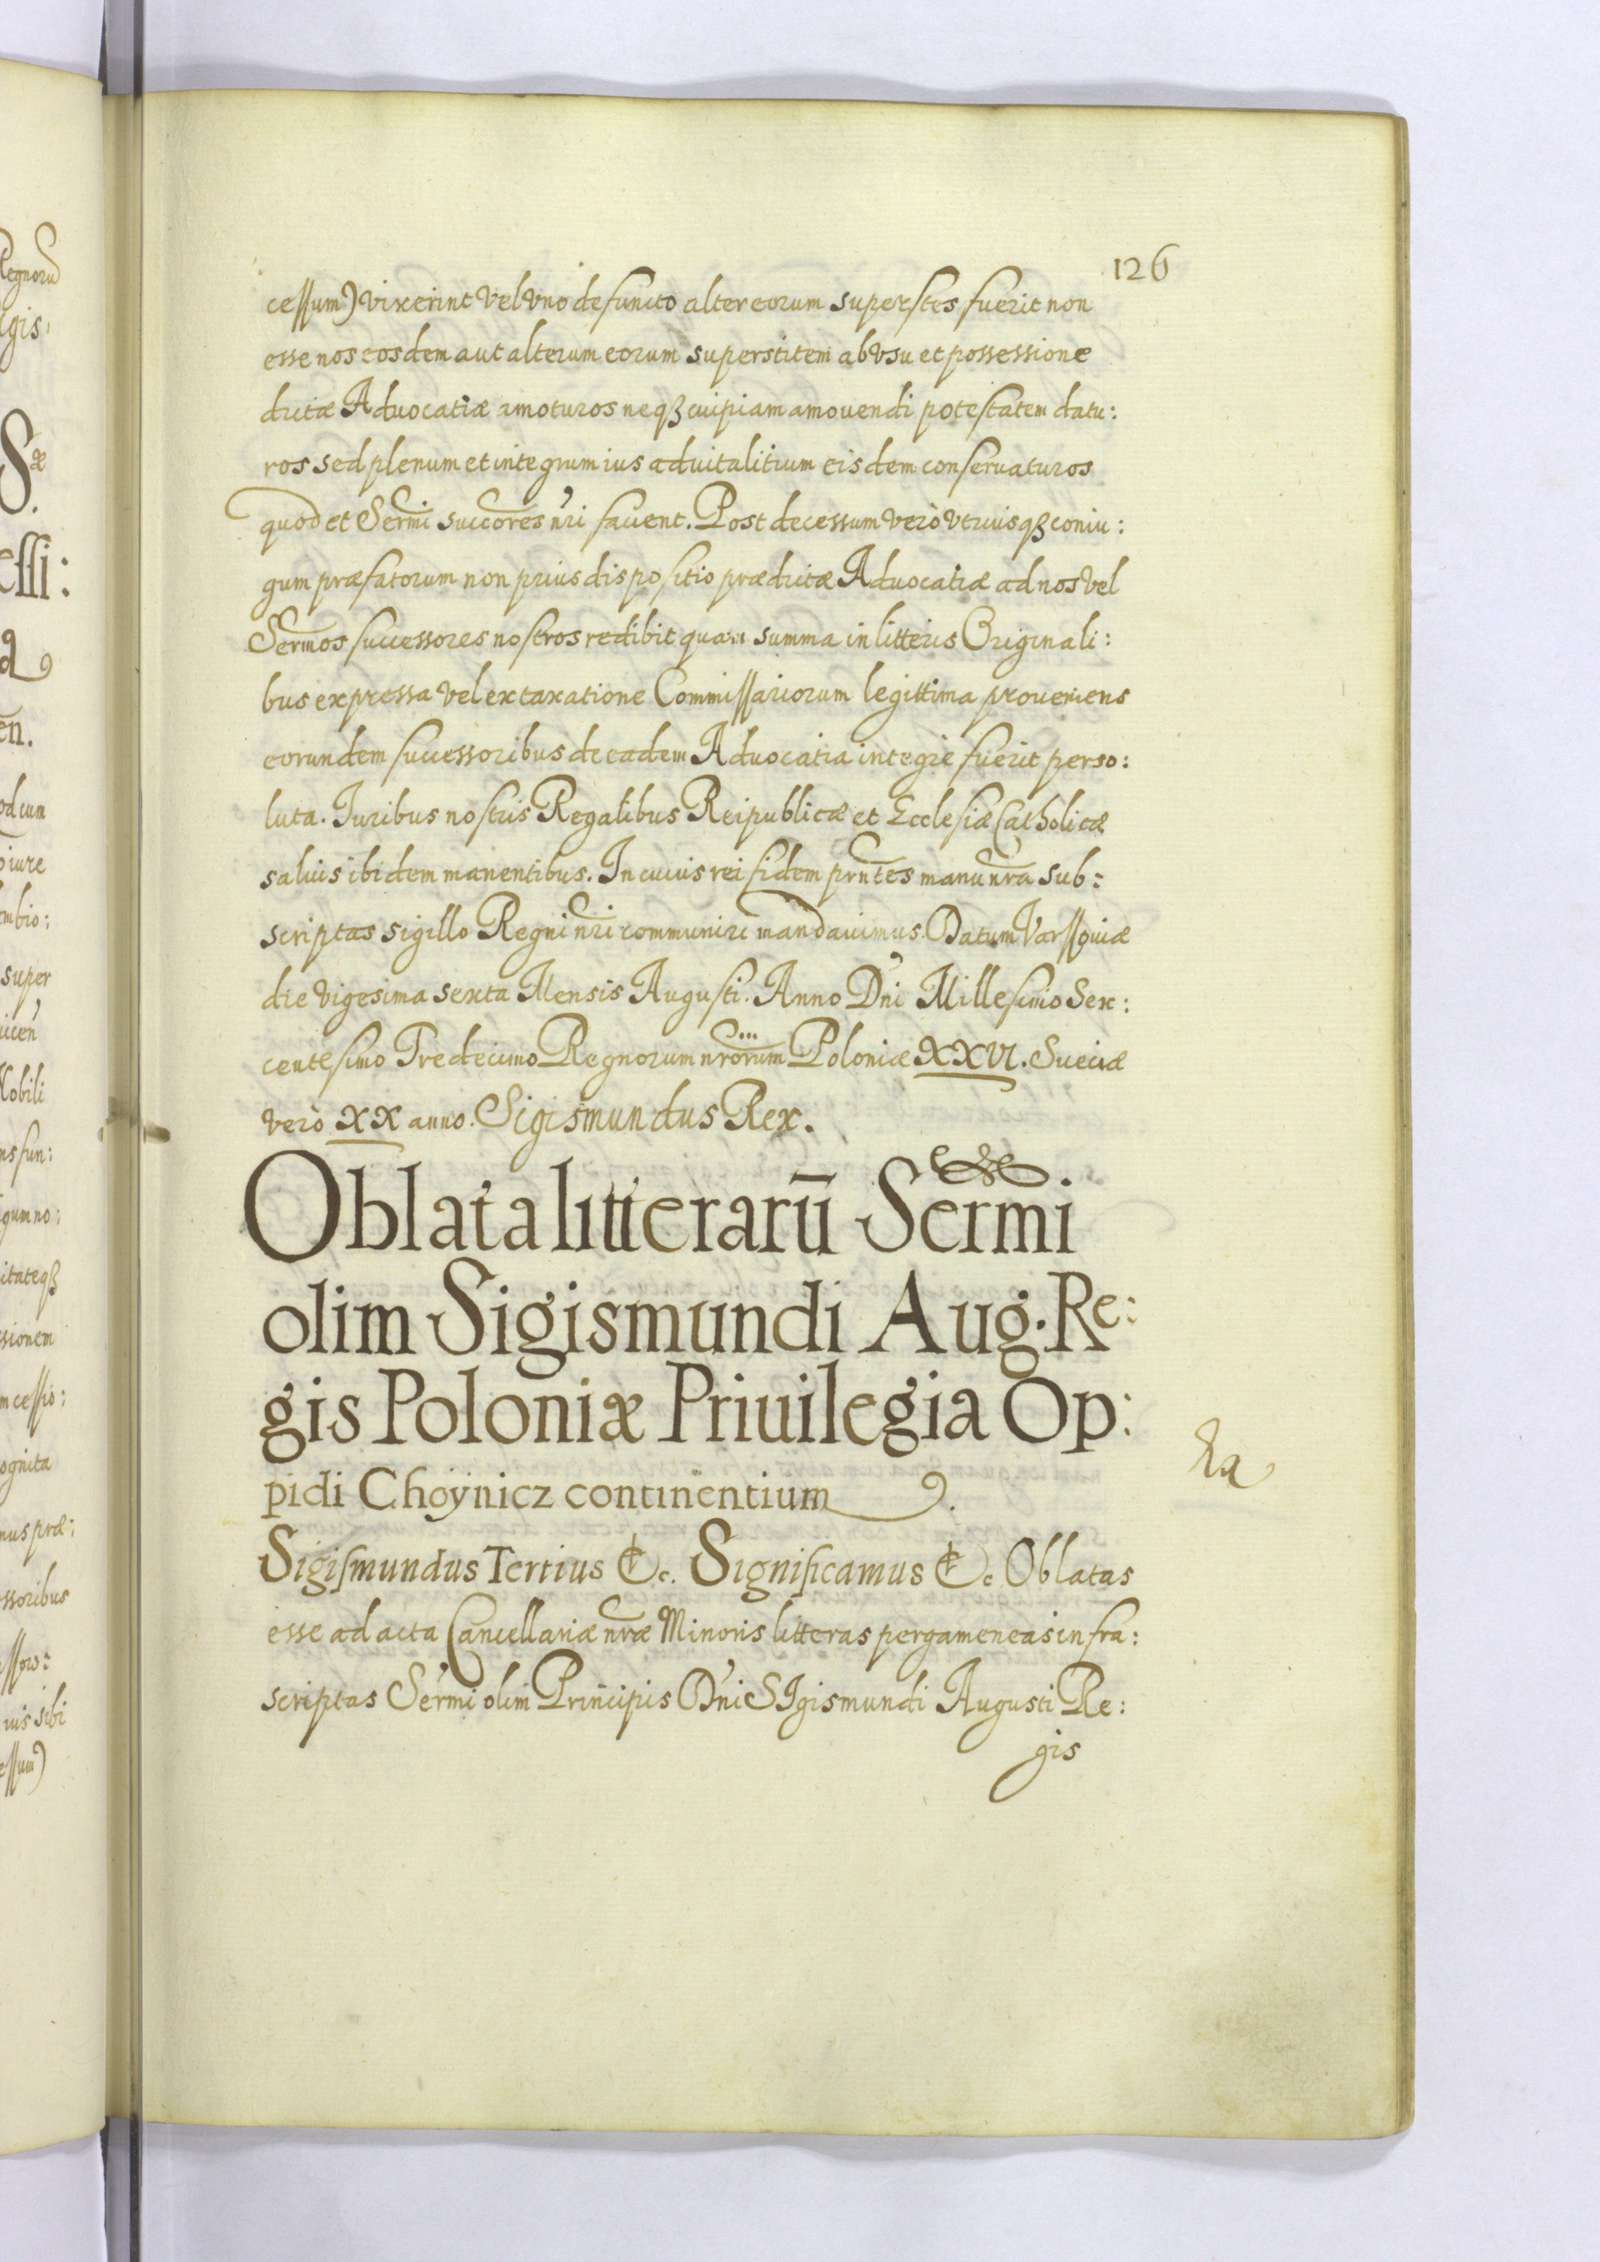 126
cessum) vixerint vel vno defuncto alter eorum superstes fuerit non
esse nos eosdem aut alterum eorum superstitem ab vsu et possessione
dictæ Aduocatiæ amoturos neqȝ cuipiam amouendi potestatem datu:
ros sed plenum et integrum ius aduitalitium eisdem conseruaturos
quod et Sermi succores nri facient. Post decessum verò vtriusqȝ coniu:
gum præfatorum non prius dispositio prædictæ Aduocatiæ ad nos vel
Sermos successores nostros redibit quam summa in litteris Originali:
bus expressa vel ex taxatione Commissariorum legittima proueniens
eorundem successoribus de eadem Aduocatia integrè fuerit perso:
luta. Iuribus nostris Regalibus Reipublicæ et Ecclesiæ Catholicæ
saluis ibidem manentibus. In cuius rei fidem prntes manu nra sub:
scriptas sigillo Regni nri communiri mandauimus. Datum Varssouiæ
die vigesima sexta Mensis Augusti. Anno Dni Millesimo Sex:
centesimo Tredecimo Regnorum nrorum Poloniæ XXVI. Sueciæ
verò XX anno. Sigismundus Rex.
Oblata litterarū Sermi
olim Sigismundi Aug. Re:
gis Poloniæ Priuilegia Op:
pidi Choynicz continentium
Sigismundus Tertius &c. Significamus &c Oblatas
esse ad acta Cancellariæ nræ Minoris litteras pergameneas infra:
scriptas Sermi olim Principis Dni SIgismundi Augusti Re:
gis